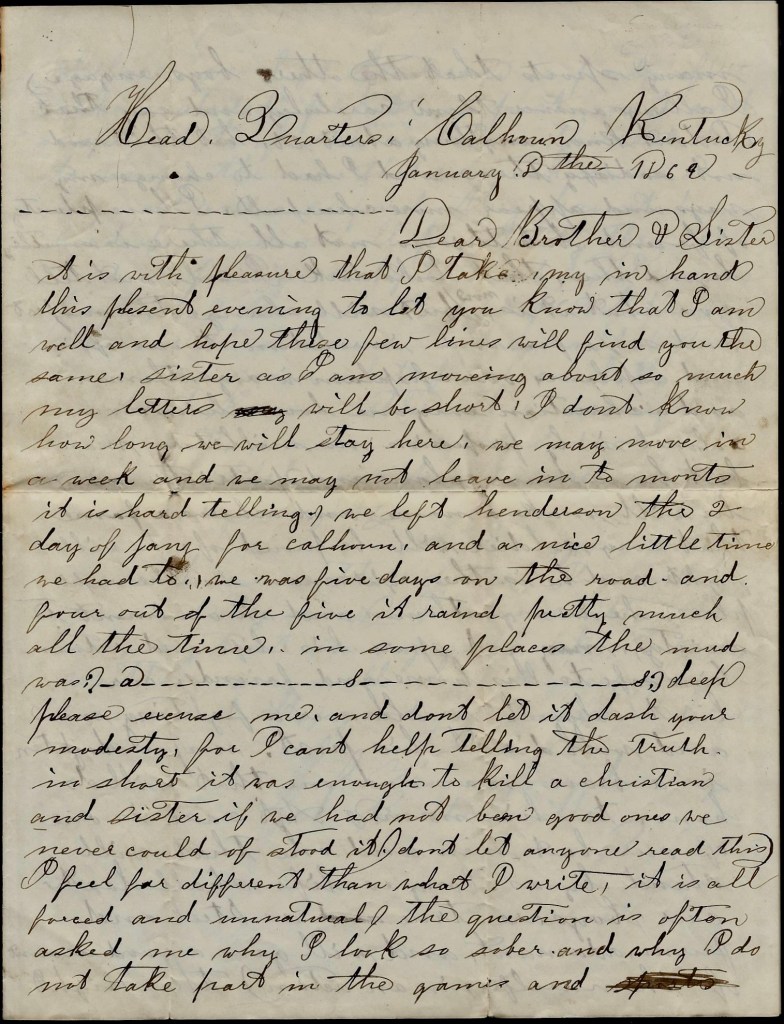 Head. Quarters, Calhoun Kentucky
January. 8 the 1862
Dear Brother & Sister
it is with pleasure that I take my in hand
this present evening to let you know that I am
well and hope these few lines will find you the
same, sister as I am moveing about so much
my letters will be short, I dont know
how long we will stay here, we may move in
a week and we may not leave in to monts
it is hard telling,) we left henderson the 2
day of Jany for calhoun, and a nice little time
we had to,) we was five days on the road. and.
four out of the five it raind pretty much
all the time,. in some places the mud
was,)-a---------s---------s,) deep
please excuse me, and dont let it dash your
modesty, for I cant help telling the truth.
in short it was enough to kill a christian
and sister if we had not ben good ones we
never could of stood it,) dont let anyone read this)
I feel far different than what I write, it is all
forced and unnatural) the question is often
asked me why I look so sober. and why I do
not take part in the games and sports